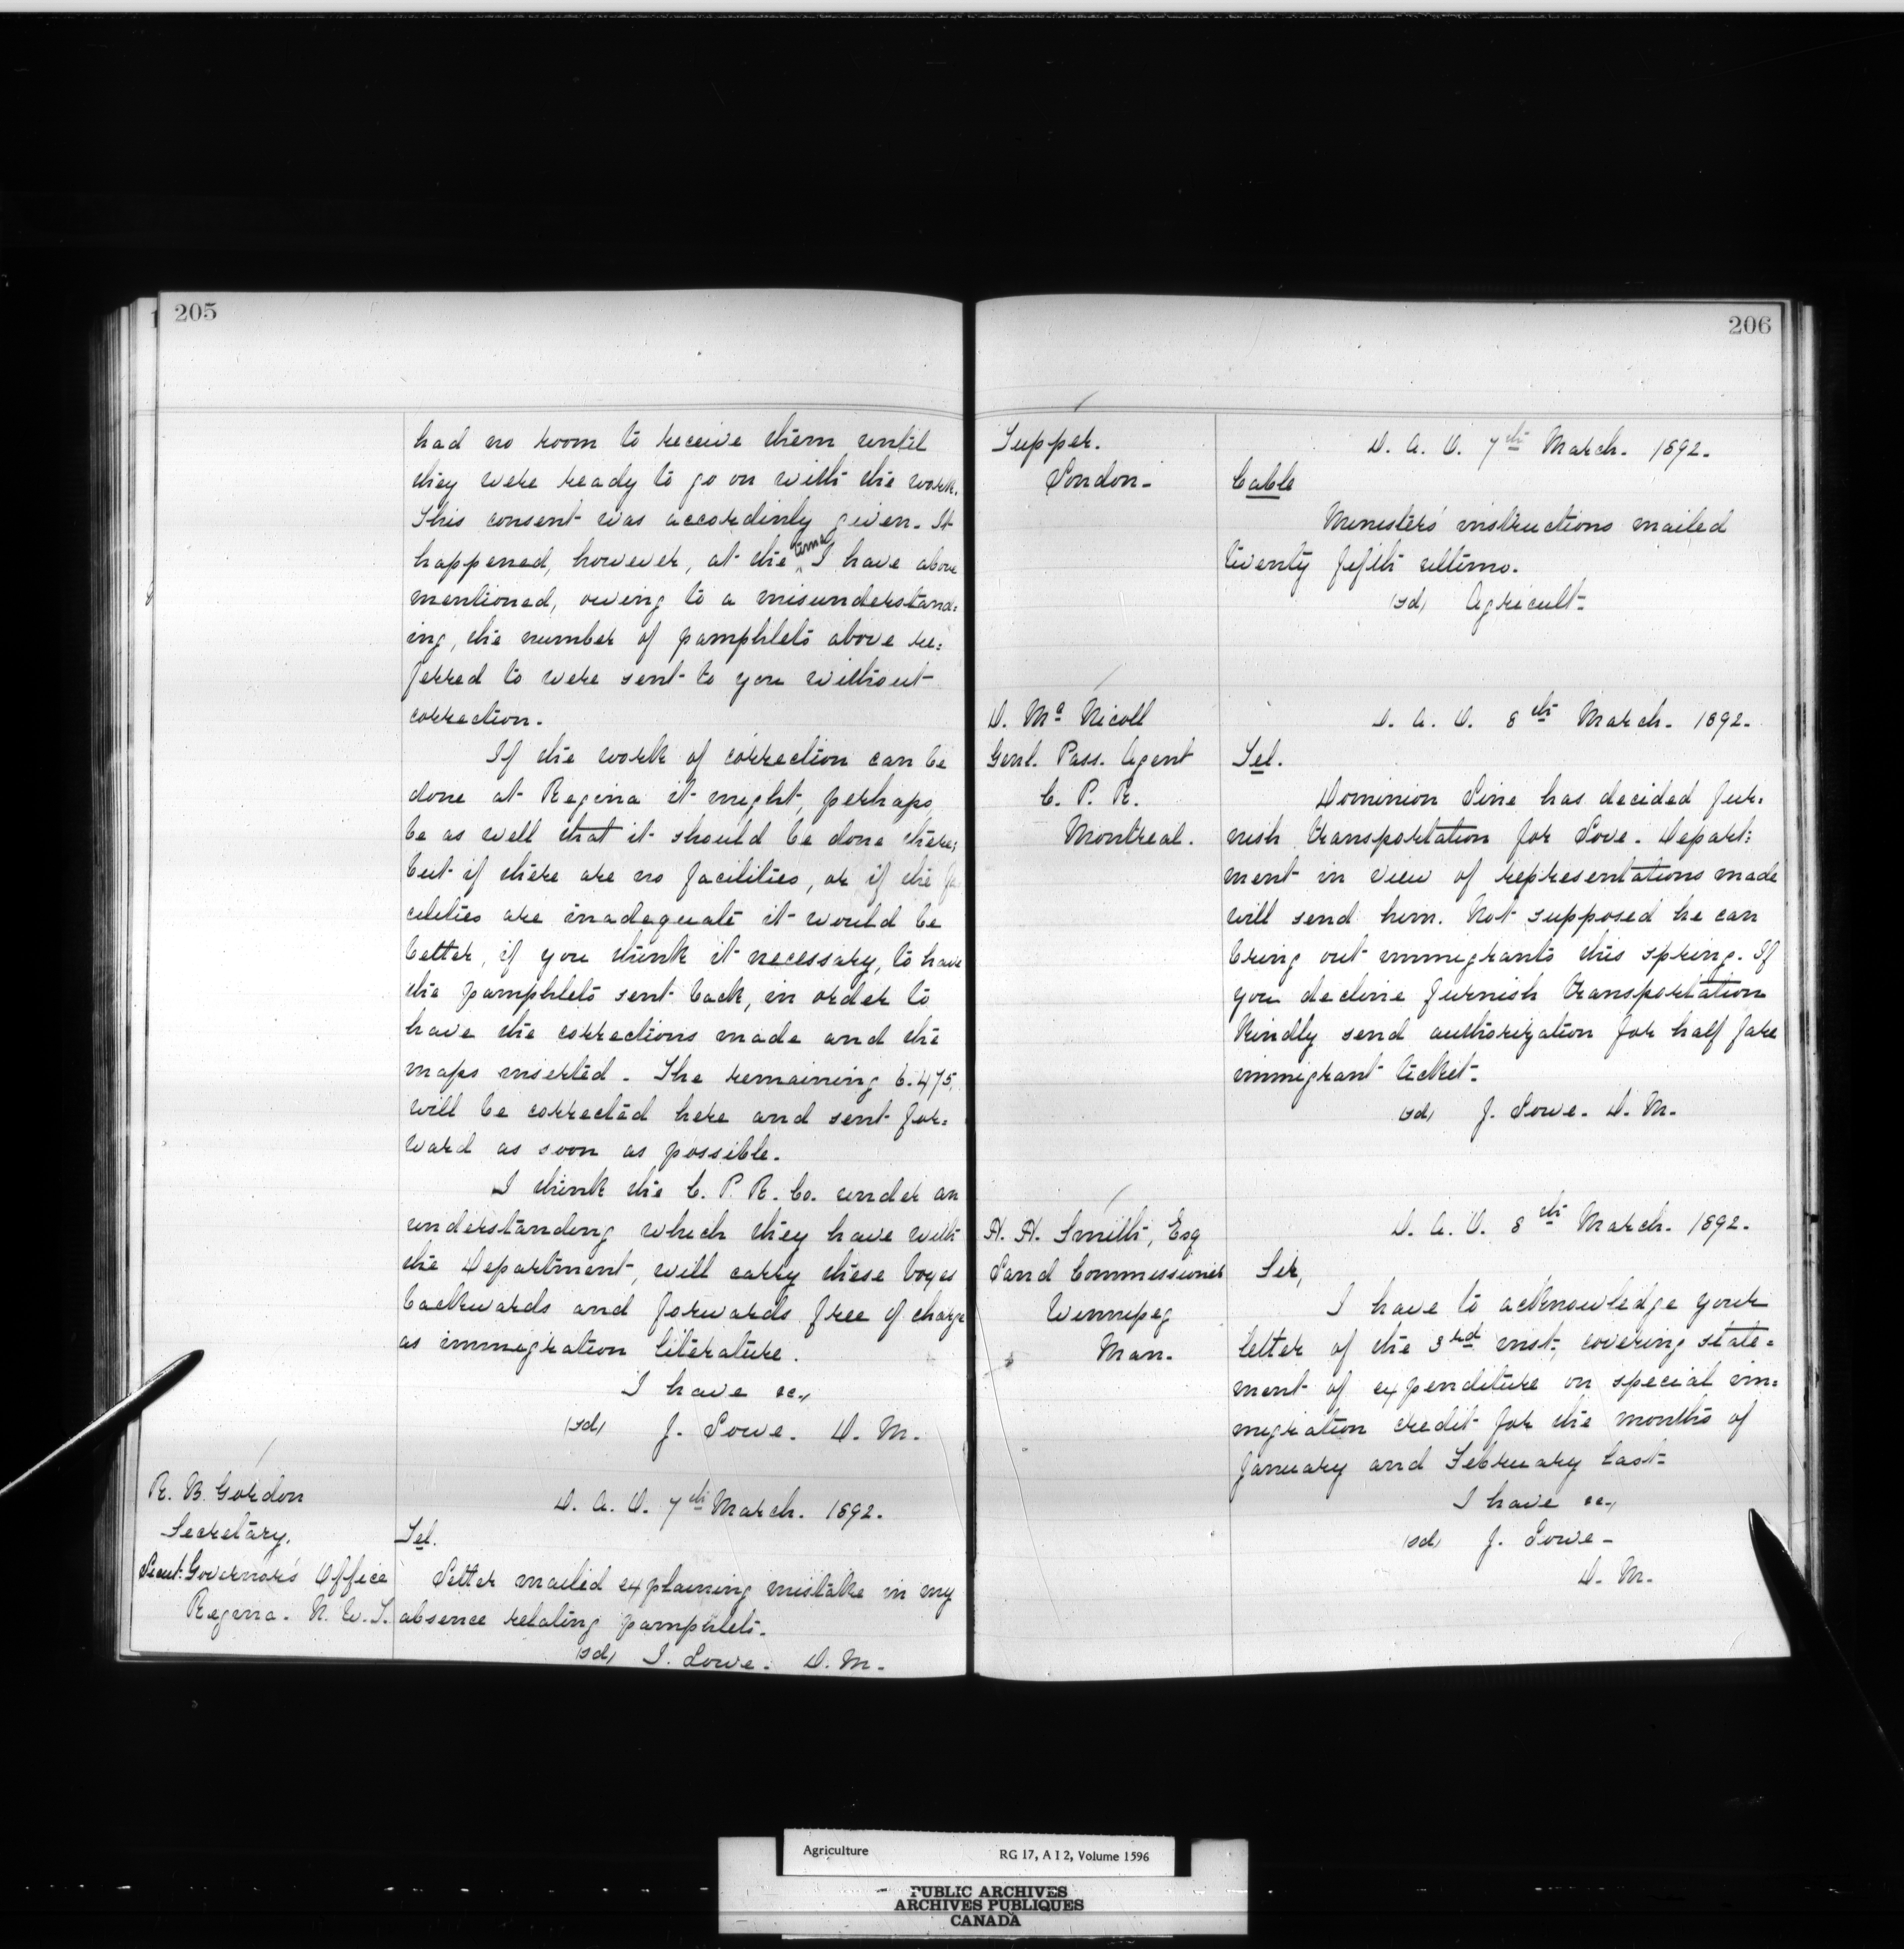 205
had no room to receive them until
they were ready to go on with the work.
This consent was accordinly given. It
happened, however, at the time I have above
mentioned, owing to a misunderstand=
ing, the number of pamphlets above re=
ferred to were sent to you without
correction.
If the work of correction can be
done at Regina it might, perhaps,
be as well that it should be done there;
but if there are no facilities, or if the fa
cilities are inadequate it would be
better, if you think it necessary, to have
the pamphlets sent back, in order to
have the corrections made and the
maps inserted. The remaining 6.475,
will be corrected here and sent for=
ward as soon as possible.
I think the C. P. R. Co. under an
understanding which they have with
the Department, will carry these boxes
backwards and forwards free of charge
as immigration literature.
I have &c.,
(sd) J. Lowe. D. M.
R. B. Gordon
Secretary.
Lieut. Governor's Office
Regina. N. W. T.
D. A. O. 7th March. 1892.
Tel.
Letter mailed explaining mistake in my
absence relating pamphlets.
(sd) J. Lowe. D. M.
206
Tupper.
London.
D. A. O. 7th March. 1892.
Cable
Ministers' instructions mailed
twenty fifth ultimo.
(sd) Agricult.
D. Mc Nicoll
Genl. Pass. Agent
C. P. R.
Montreal.
D. A. O. 8th March. 1892.
Tel.
Dominion Line has decided fur=
nish transportation for Love. Depart=
ment in view of representations made
will send him. Not supposed he can
bring out immigrants this spring. If
you decline furnish transportation
kindly send authorization for half fare
immigrant ticket.
(sd) J. Lowe. D. M.
H. H. Smith, Esq
Land Commissioner
Winnipeg
Man.
D. A. O. 8th March. 1892.
Sir,
I have to acknowledge your
letter of the 3rd inst., covering state=
ment of expenditure on special im=
migration credit for the months of
January and February last.
I have &c.,
(sd) J. Lowe.
D. M.
Agriculture RG 17, A I 2, Volume 1596
PUBLIC ARCHIVES
ARCHIVES PUBLIQUES
CANADA